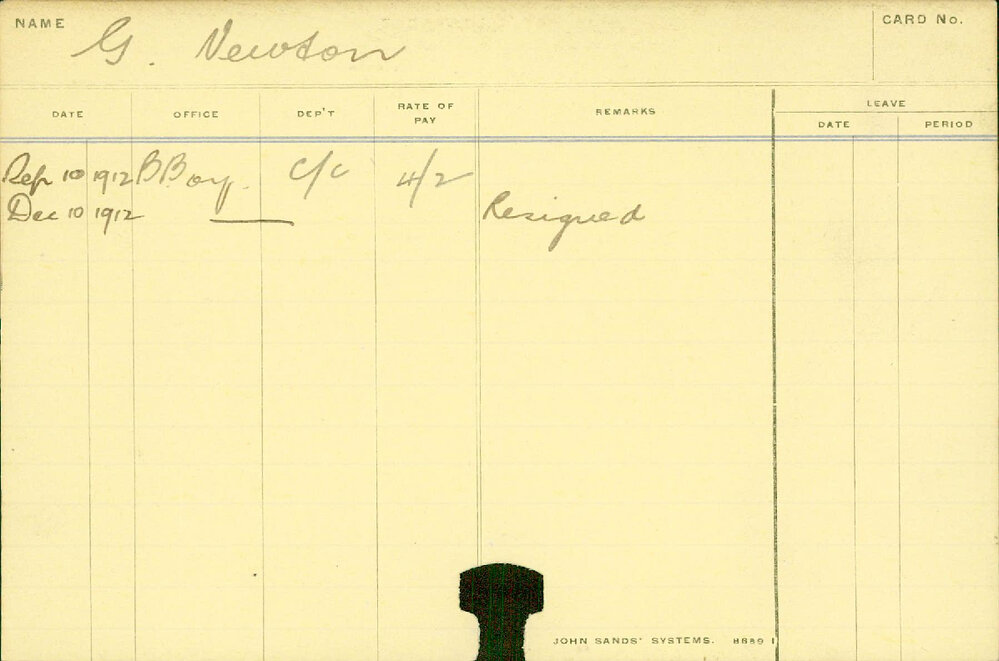 NAME G. Newton CARD No.
LEAVE
DATE OFFICE DEP'T RATE OF PAY REMARKS DATE PERIOD
Sep 10 1912 B Boy. C/C 4/2
Dec 10 1912 Resigned
JOHN SANDS' SYSTEMS. 8889